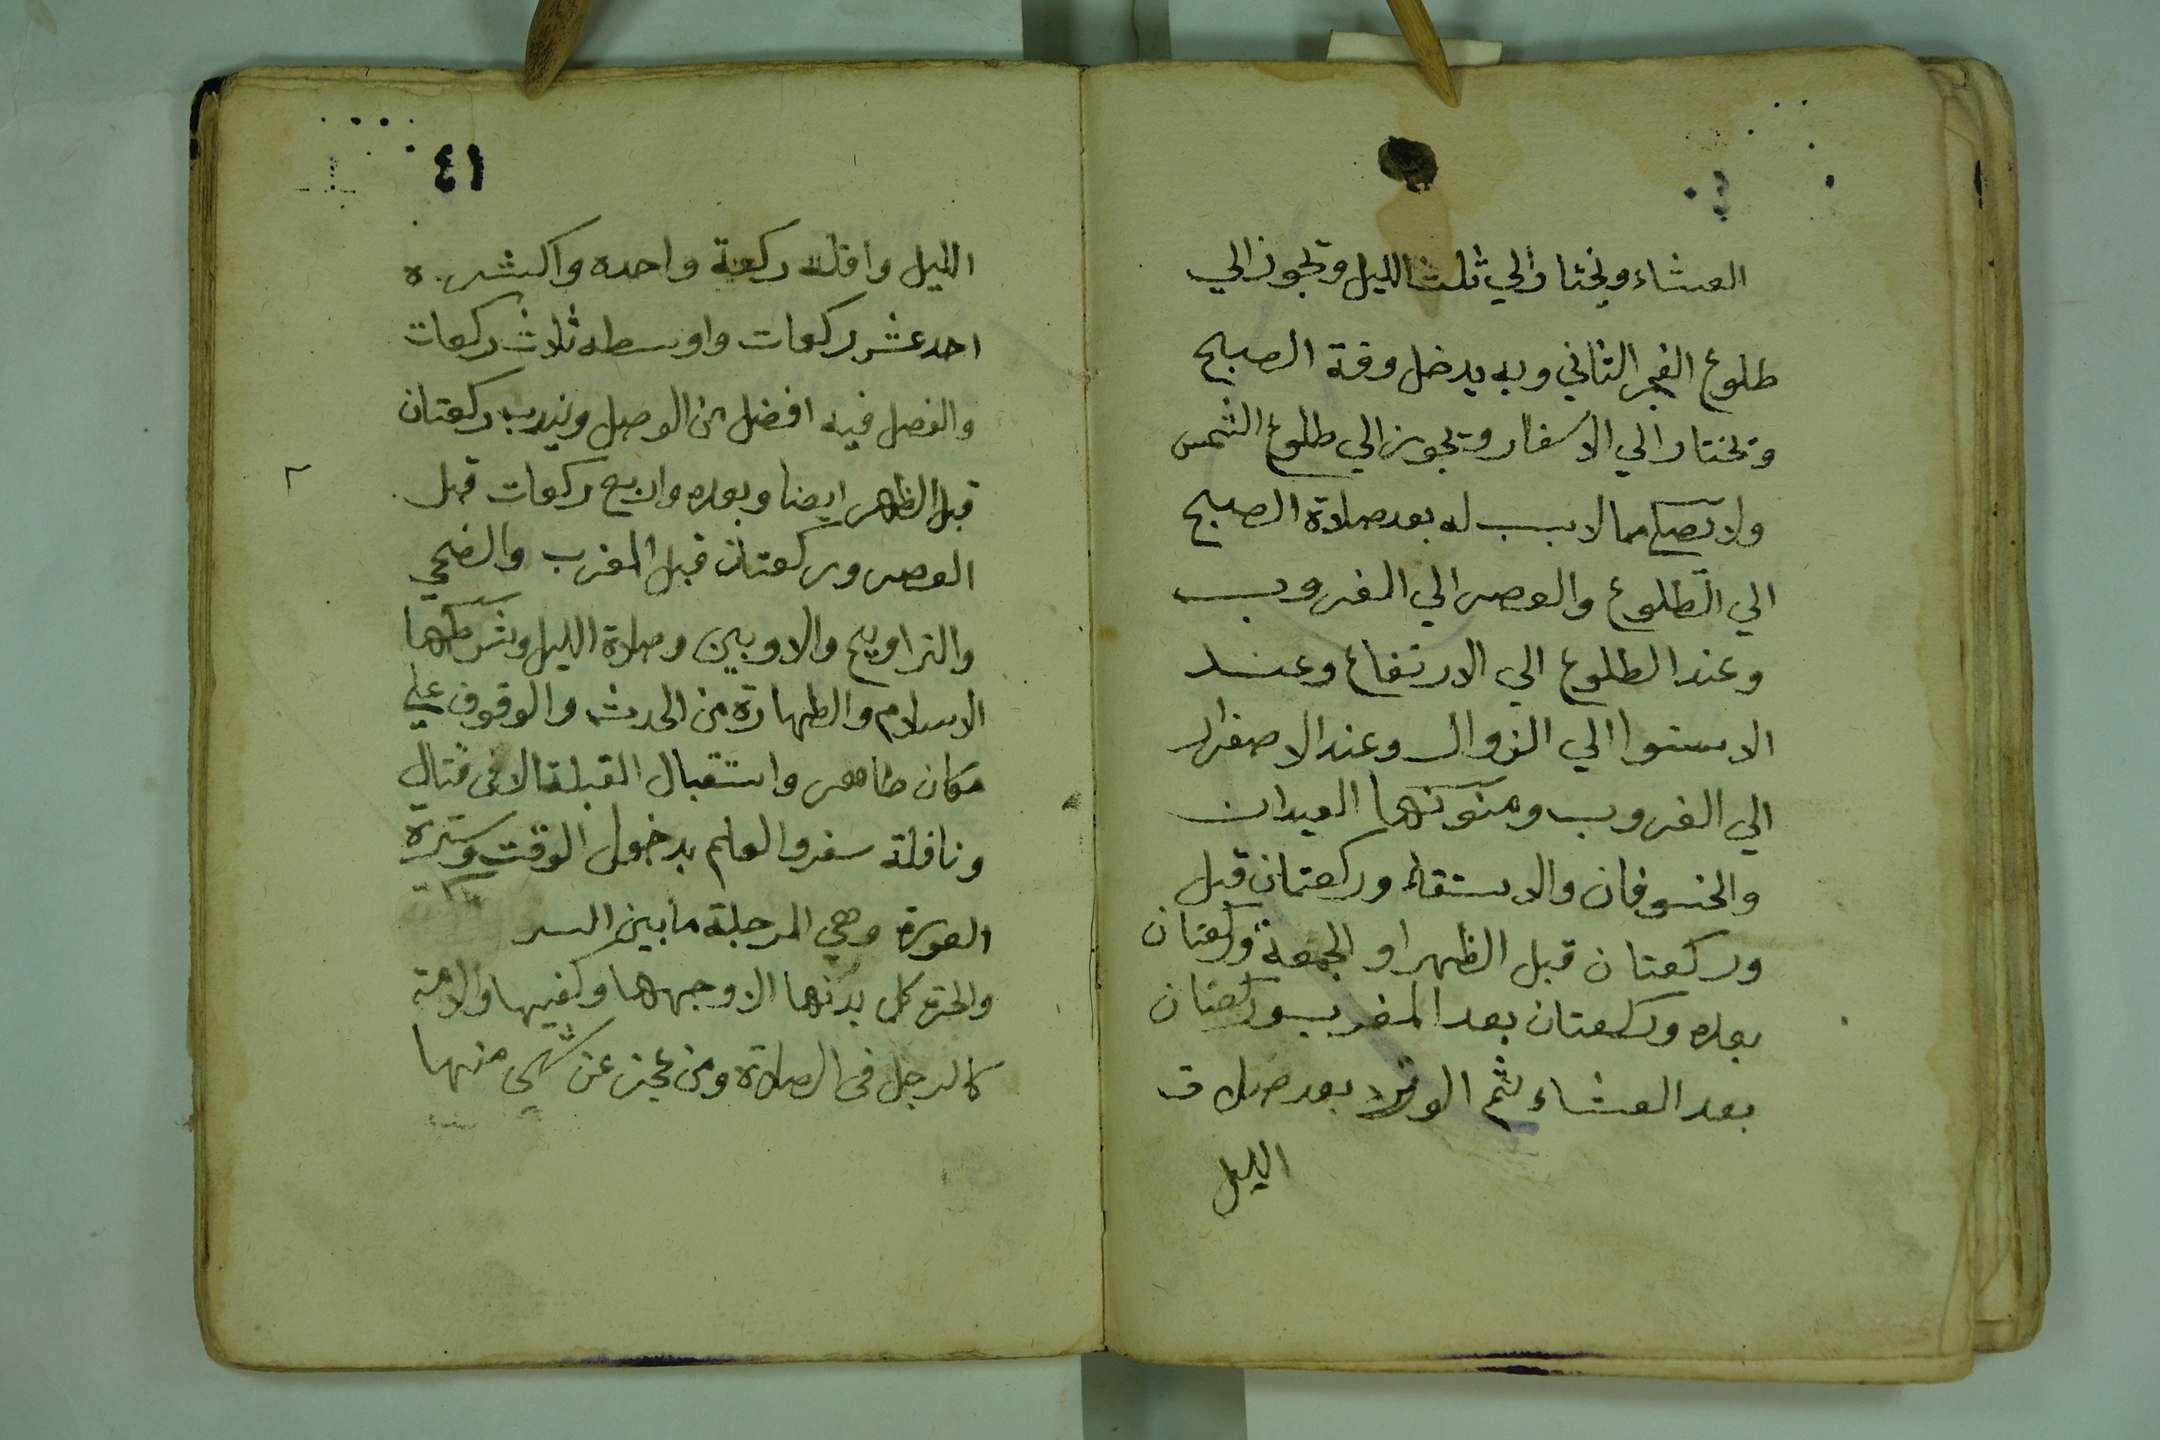 العشاء ويختار الي ثلث الليل وتجوز الي
طلوع الفجر الثاني وبه يدخل وقة الصبح
وتختار الي الاسفار وتجوز الي طلوع الشمس
ولا تصح مما لا سبب له بعد صلاة الصبح
الي الطلوع والعصر الي الغروب
وعند الطلوع الي الارتفاع وعند
الاستوا الي الزوال وعند الاصفرار
الي الغروب ومنوكها العيدان
والخسوفان والاستقاء وركعتان قبل
وركعتان قبل الظهر او الجمعة وركعتان
بعده وركعتان بعد المغرب وركعتان
بعد العشاء ثم الوتر بعد صلات
الليل
٤١
الليل واقله ركعة واحده واكثره
احد عشر ركعات واوسطه ثلاث ركعات
والفصل فيه افضل من الوصل ويندب ركعتان
قبل الظهر ايضا وبعده واربع ركعات قبل
العصر وركعتان قبل المغرب والضحي
والتراويح والاوبين وصلاة الليل وشرطها
الاسلام والطهارة من الحدث والوقوف علي
مكان طاهر واستقبال القبلة الا في قتال
ونافلة سفر والعلم بدخول الوقت وسترة
العورة وهي الرجلة ما بين السر
والحرة كل بدنها الا وجهها وكفيها والامة
كالرجل في الصلاة ومن عجز عن شي منها